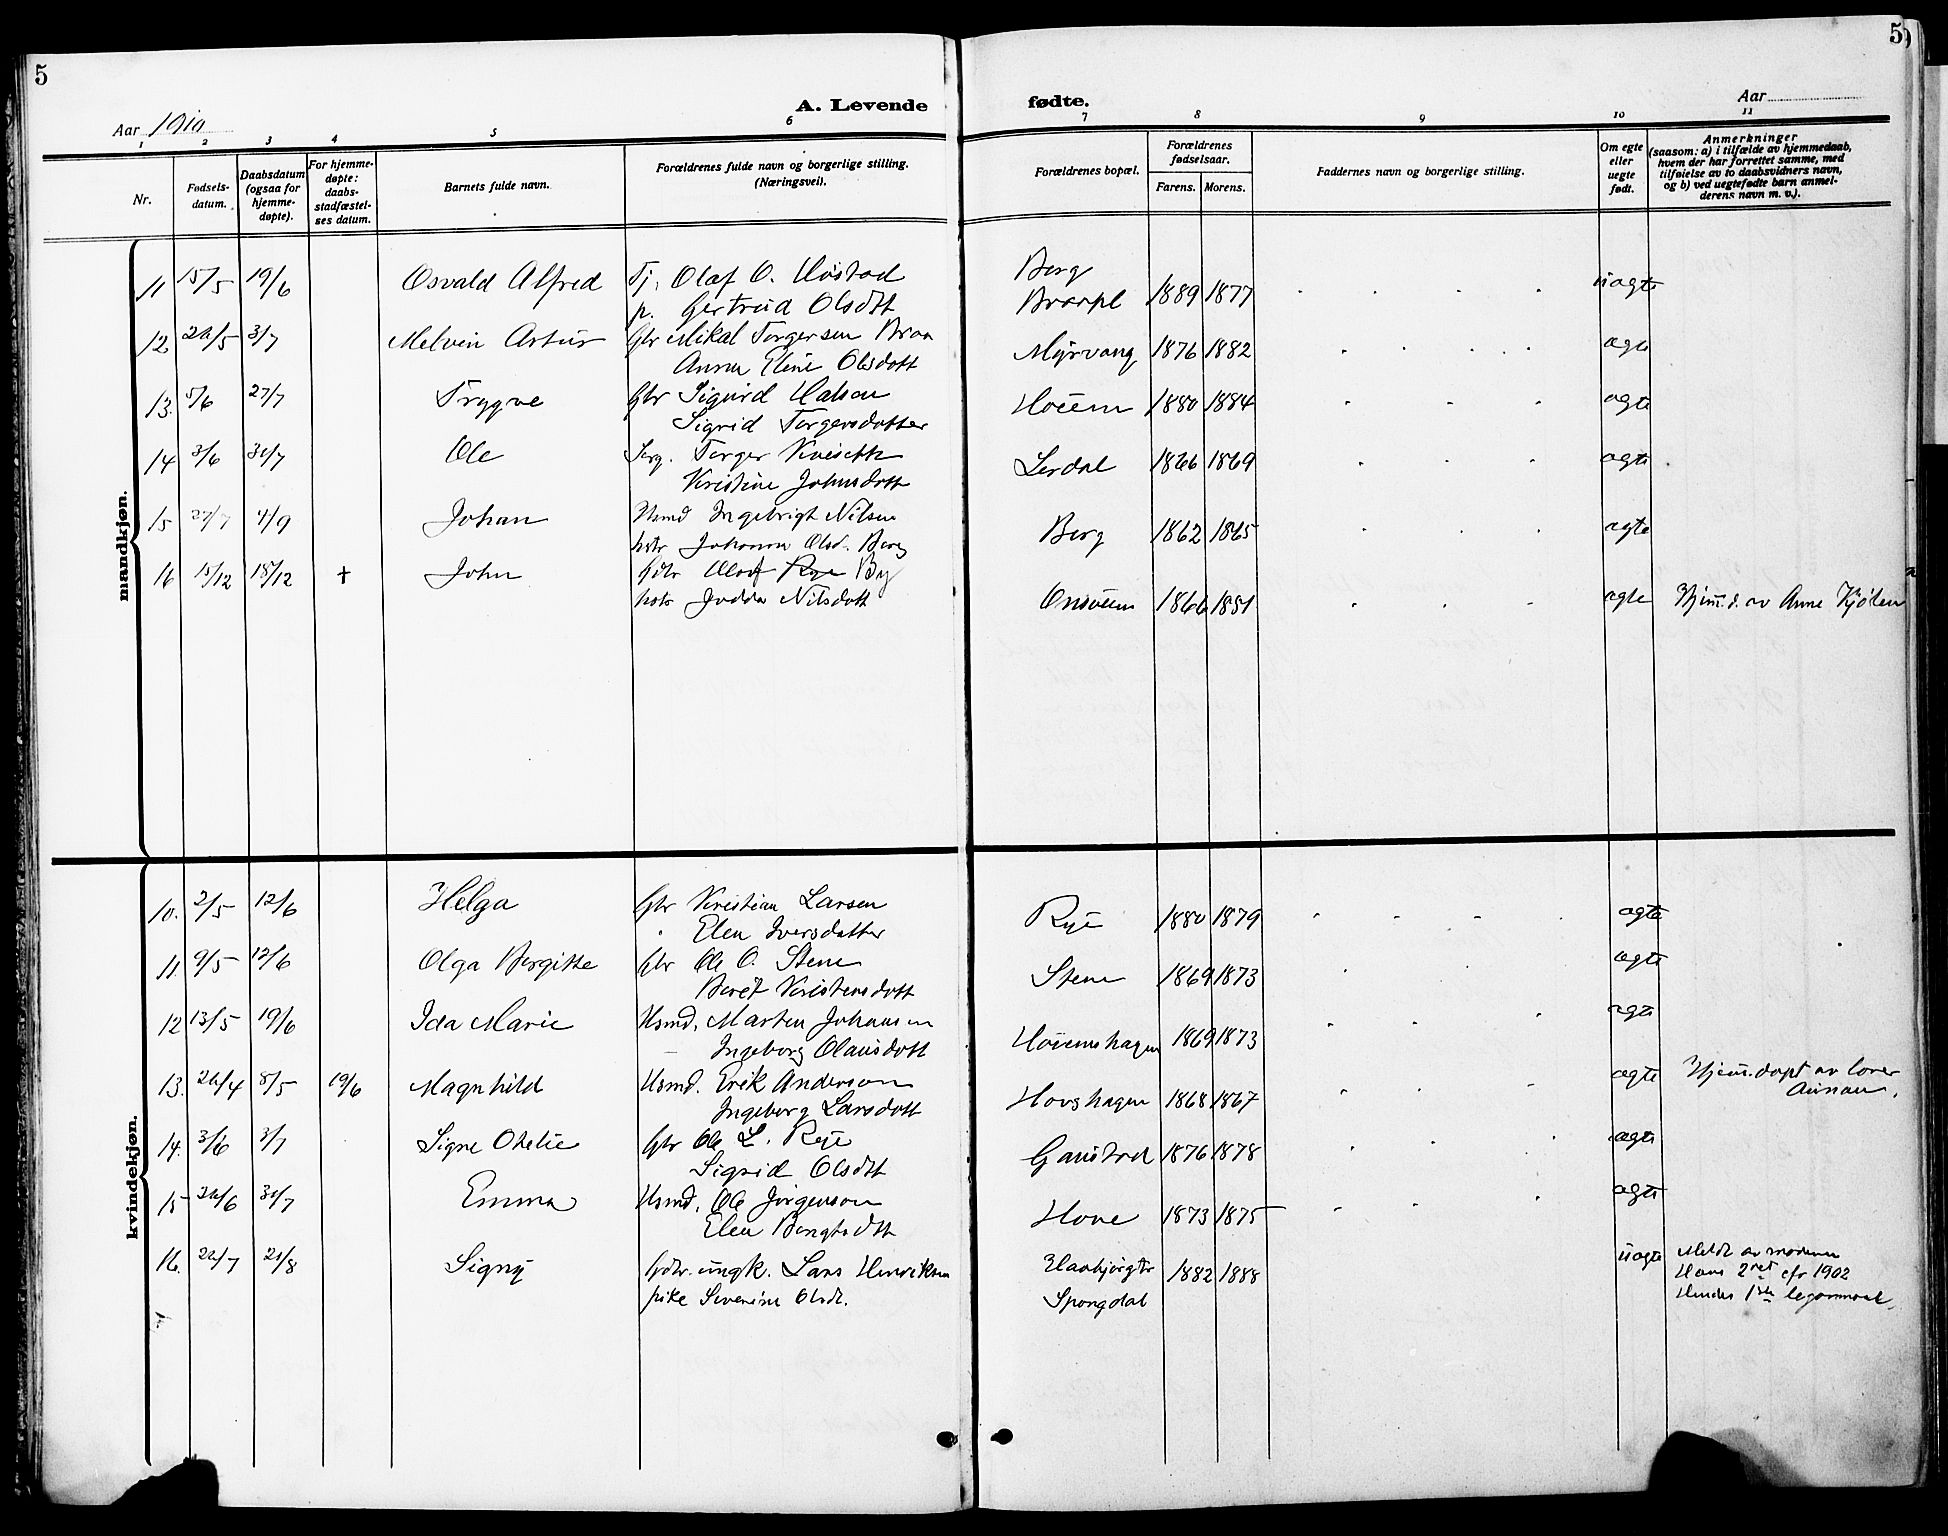 5
5
A. Levende
fødte.
Aar 1910
Aar
1 2 3 4 5 6 7 8 9 10 11
Nr.
Fødsels-
datum.
Daabsdatum
(ogsaa for
hjemme-
døpte).
For hjemme-
døpte:
daabs-
stadfæstel-
ses datum.
Barnets fulde navn.
Forældrenes fulde navn og borgerlige stilling.
(Næringsvei).
Forældrenes bopæl.
Forældrenes
fødselsaar.
Farens. Morens.
Faddernes navn og borgerlige stilling.
Om egte
eller
uegte
født.
Anmerkninger
(saasom: a) i tilfælde av hjemmedaab,
hvem der har forrettet samme, med
tilføielse av to daabsvidners navn,
og b) ved uegtefødte barn anmel-
derens navn m. v.).
mandkjøn.
11 15/5 19/6 Osvald Alfred Tj. Olaf O. Høstad Berg
p. Gertrud Olsdtt 1889 1877 uagte
12 3/7 Melvin Artur Gbr Mikal Torgersen Braa
Anna Eline Olsdatt Myrvang 1876 1882 agte
13. 5/6 27/7 Trygve Gbr Sigurd Halsen
Sigrid Torgersdotter 1880 1884 agte
14 3/6 Ole Torger
Kristine Johnsdatt Lerdal 1866 1869 agte
15 27/7 4/9 Johan Husmd Ingebrigt Nilsen
hstr Johanna Olsd. Berg Berg 1862 1865 agte
16 15/12 18/12 † John Gbr Olaf Rye By
hstr Nilsdatt 1866 1881 agte Hjem.d. av Anne Kjølen
kvindekjøn.
10. 2/5 12/6 Helga Gbr Kristian Larsen
Elen Iversdatter Rye 1880 1879 agte
11. 9/5 12/6 Olga Bergitte Gbr Ole O. Stene
Beret Kristensdatt Stene 1869 1873 agte
12 13/5 19/6 Ida Marie Husmd. Marten Johansen
Ingeborg Olausdatt 1869 1873 agte
13. 8/5 19/6 Magnhild Husmd. Erik Anderson
Ingeborg Larsdatt Hovshagen 1868 1867 agte Hjem.døpt av
Aunan.
14. 3/6 3/7 Signe Otelie Gbr Ole L. Rye
Sigrid Olsdtt Gaustad 1876 1878 agte
15 Emma Husmd. Ole Jørgenson
Elen Bengtsdtt Hove 1873 1875 agte
16. 21/8 Signy ungk. Lars Henriksen
pike Severine Olsdt. Spongdal 1882 1888 uagte
Meldt av moderen
Hans 2net efr 1902
Hendes 1ste legermaal.